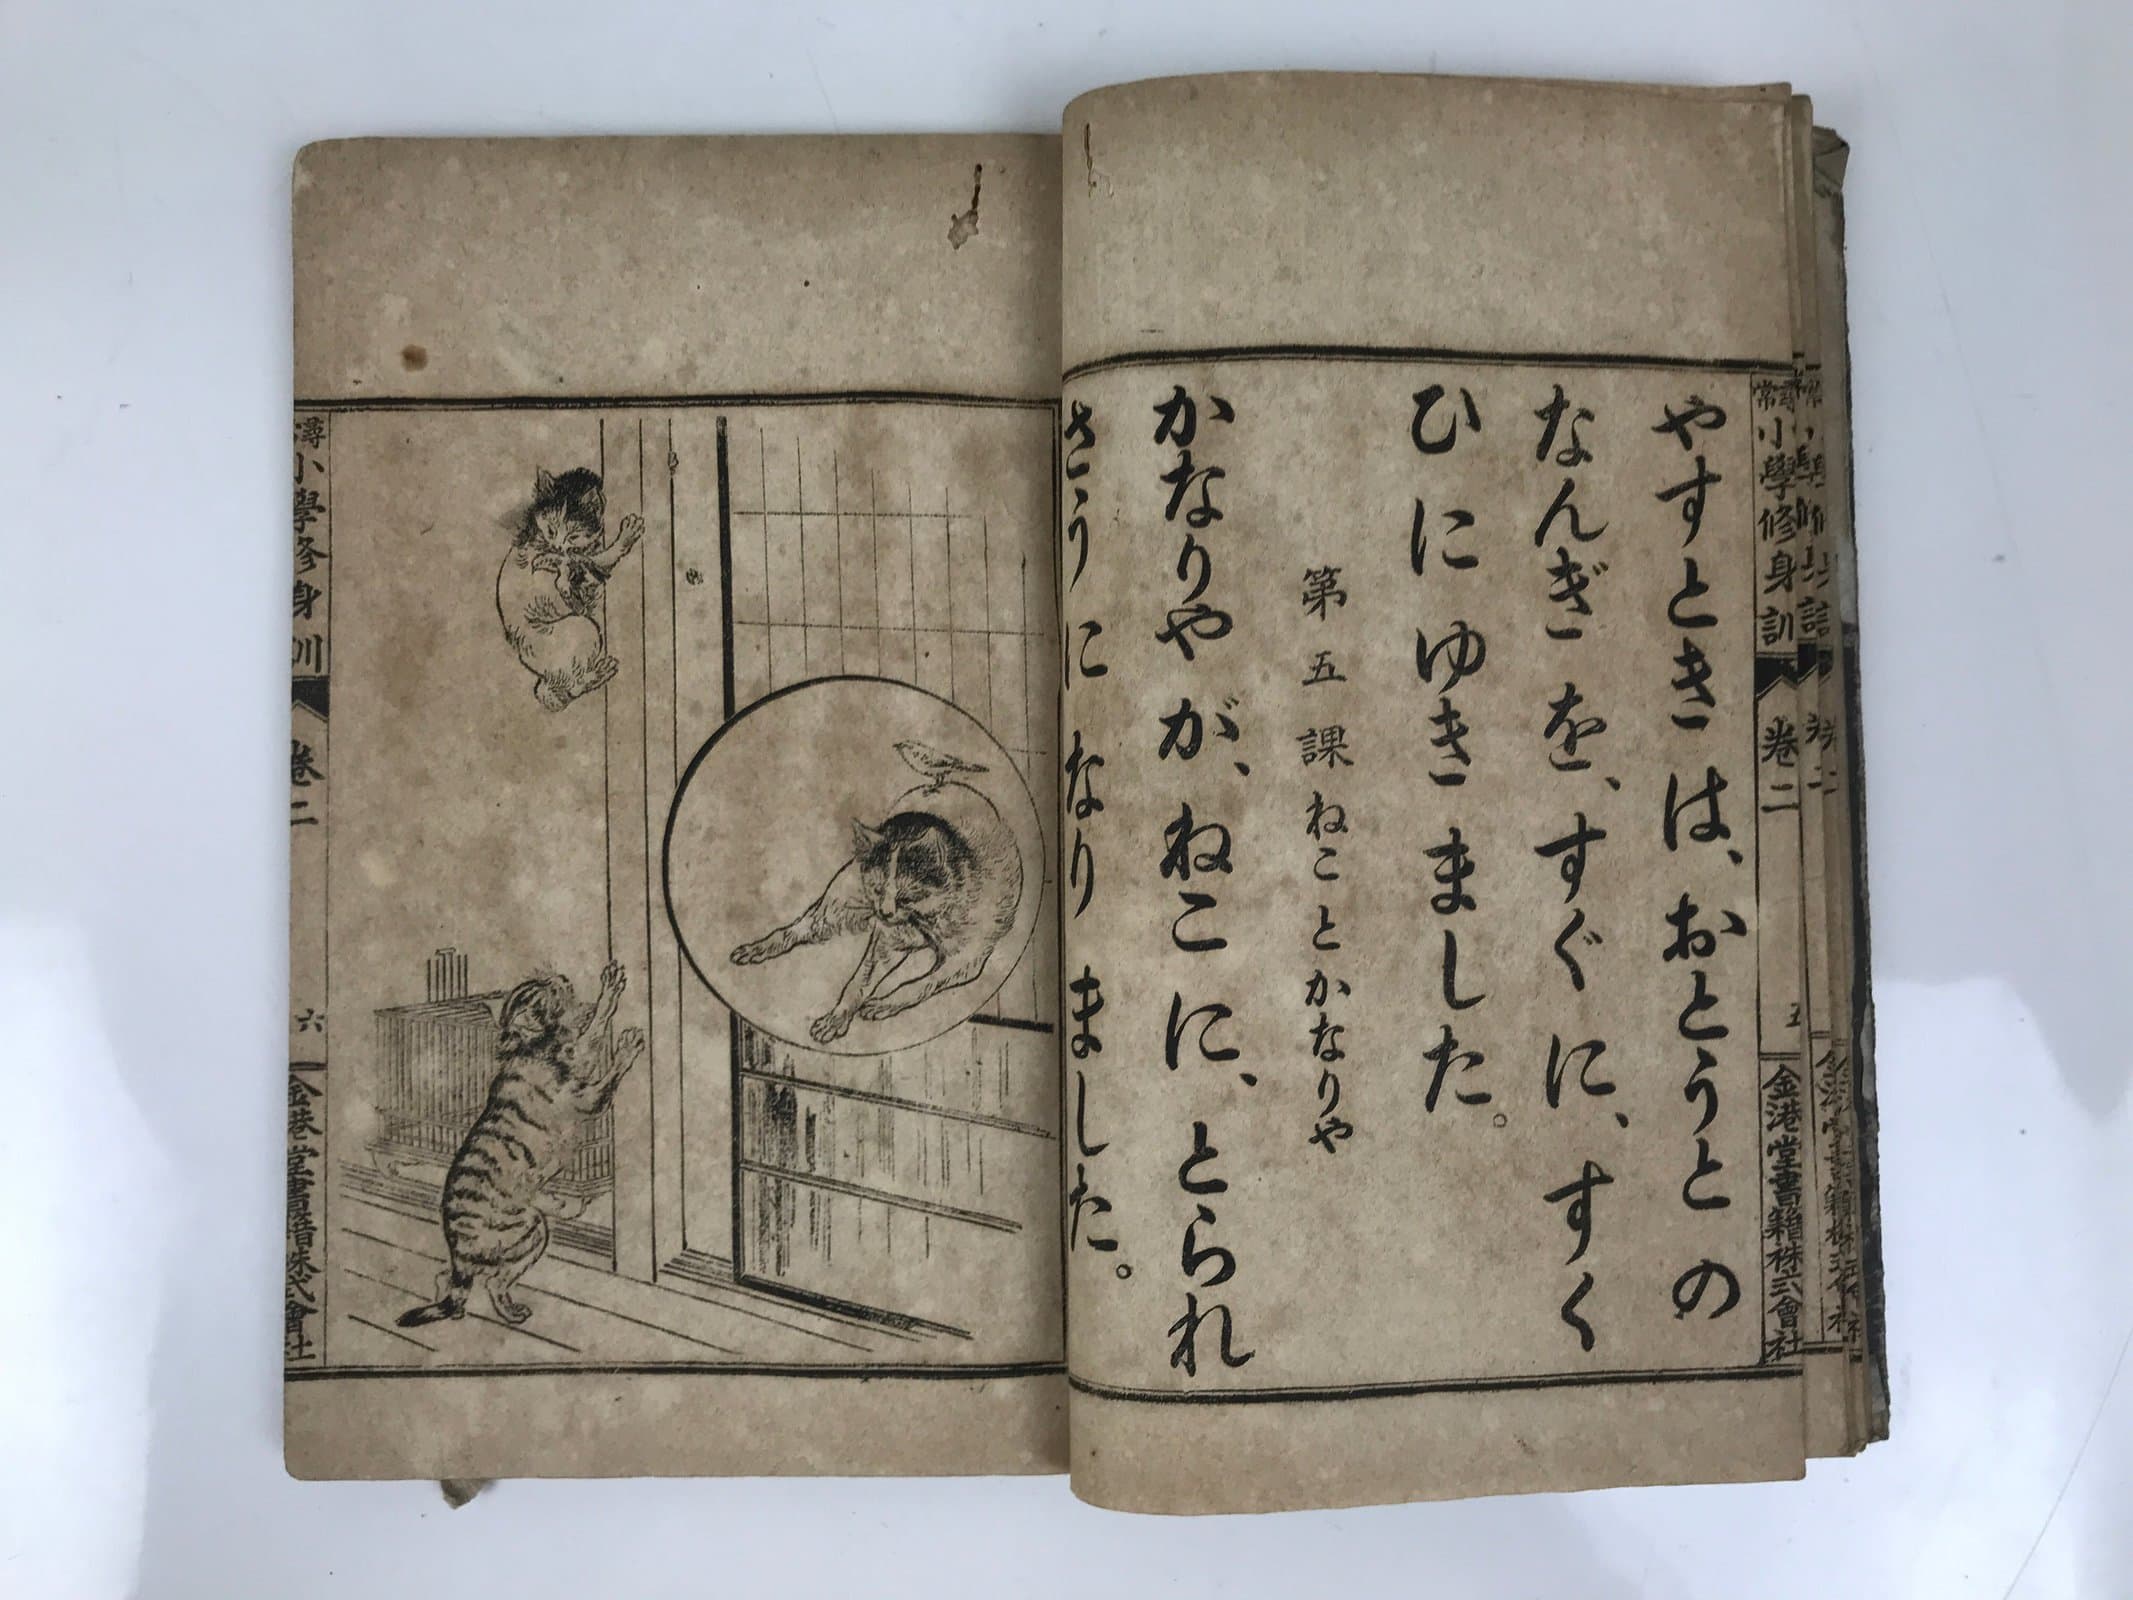 尋常小學修身訓 卷二 五 金港堂書籍株式會社
やすときは、おとうとの
なんぎを、すぐに、すく
ひにゆきました。
第五課 ねことかなりや
かなりやが、ねこに、とられ
さうになりました。
尋常小學修身訓 卷二 六 金港堂書籍株式會社